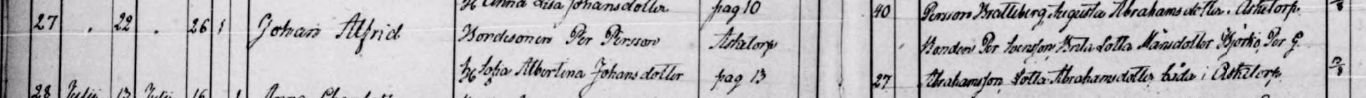 H Anna Lisa Johansdotter pag 10 40 Persson Bratteberg, Augusta Abrahamsdotter, Asketorp
27 . 22 . 26 1 Johan Alfrid Bordssonen Per Persson Asketorp Bonden Per Svensson, Brita Lotta Månsdotter Bjorkö, Per G.
H Sofia Albertina Johansdotter pag 13 27 Abrahamsson, Lotta Abrahamsdotter, båda i Asketorp
28 Julii 13 Julii 16 1